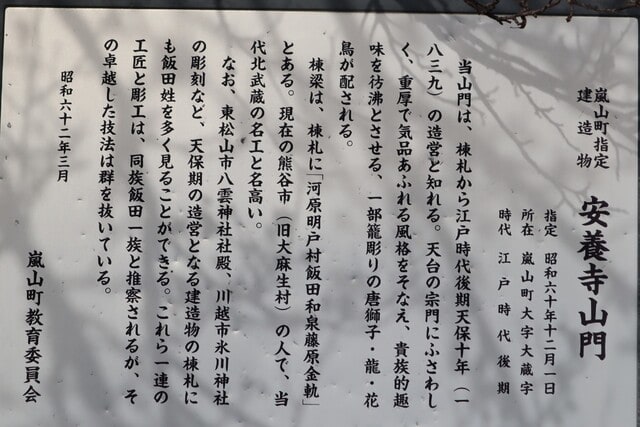 嵐山町指定
建造物
安養寺山門
指定 昭和六十年十二月一日
所在 嵐山町大字大蔵字
時代 江戸時代後期
当山門は、棟札から江戸時代後期天保十年（一
八三九）の造営と知れる。天台の宗門にふさわし
く、重厚で気品あふれる風格をそなえ、貴族的趣
味を彷沸とさせる、一部籠彫りの唐獅子・龍・花
鳥が配される。
棟梁は、棟札に「河原明戸村飯田和泉藤原金軌」
とある。現在の熊谷市（旧大麻生村）の人で、当
代北武蔵の名工と名高い。
なお、東松山市八雲神社社殿、川越市氷川神社
の彫刻など、天保期の造営となる建造物の棟札に
も飯田姓を多く見ることができる。これら一連の
工匠と彫工は、同族飯田一族と推察されるが、そ
の卓越した技法は群を抜いている。
昭和六十二年三月
嵐山町教育委員会